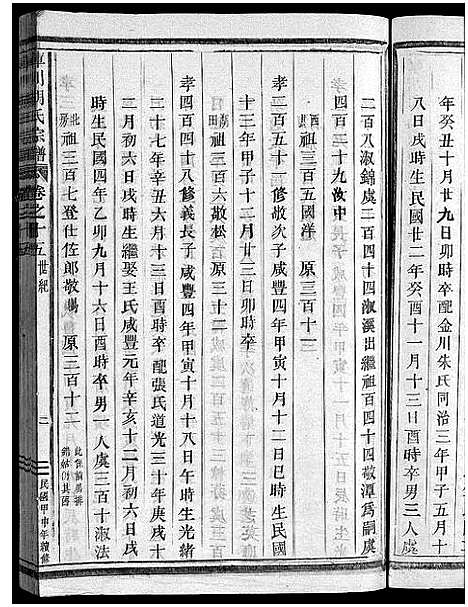 年癸丑十月廿九日卯時卒配金川朱氏同治三年甲子五月十
八日戌時生民國廿二年癸酉十一月十三日酉時卒男三人虞
二百八淑錦虞二百四十四淑溪出繼祖百四十四敬潭為嗣虞
孝四百三十九汝中
西房祖三百五國洋 原三百十一
孝二百五十一修敬次子咸豐四年甲寅十月十二日巳時生民國
十三年甲子十二月三日卯時卒
南田祖三百六敬松 原三十二
孝四百四十八修義長子咸豐四年甲寅十月十八日午時生光緒
二十七年辛丑六月十七日酉時卒配張氏道光三十年庚戌十
二月初六日戌時生繼娶王氏咸豐元年辛亥十二月初六日戌
時生民國四年乙卯九月十六日酉時卒男一人虞三百十淑法
北房祖三百七登仕佐郎敬賜 原三百十二
川胡氏宗譜 卷之十五 世紀 三 民國甲申年續修